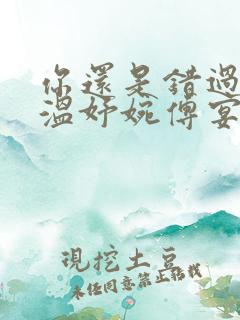 你還是錯過
溫妤婉傅宴
現挖土豆
未經同意禁止轉載